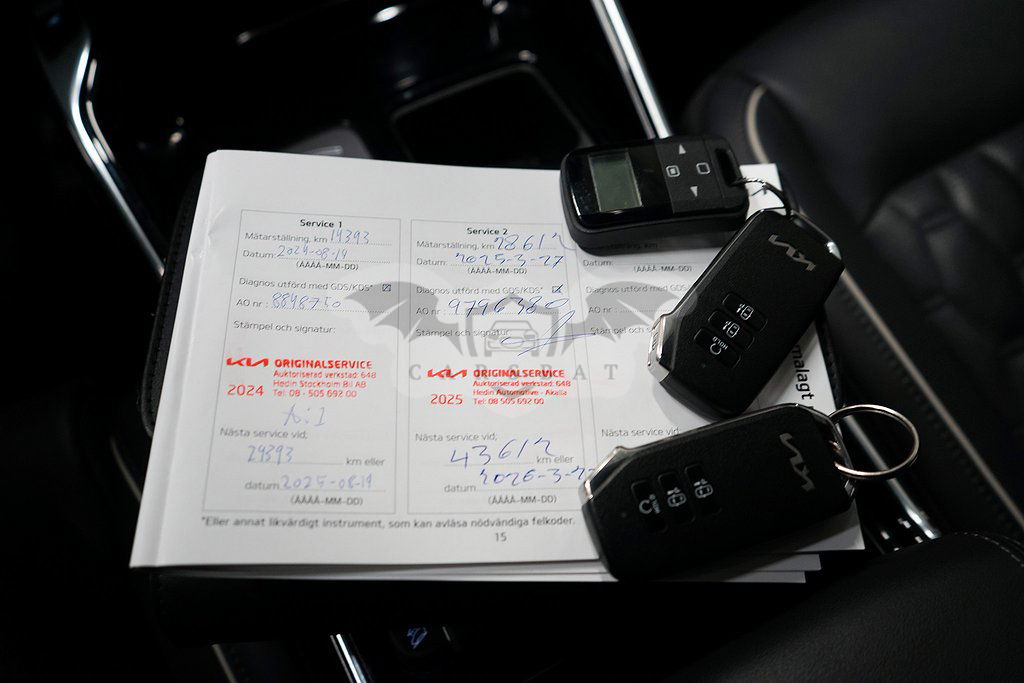 Service 1
Mätarställning, km 14393
Datum: 2024-08-19
(ÅÅÅÅ-MM-DD)
Diagnos utförd med GDS/KDS*
AO nr: 8848750
Stämpel och signatur:
KIA ORIGINALSERVICE
Auktoriserad verkstad: 648
Hedin Stockholm Bil AB
2024 Tel: 08 - 505 692 00
Nästa service vid;
29393 km eller
datum 2025-08-19
(ÅÅÅÅ-MM-DD)
Service 2
Mätarställning, km 28612
Datum: 2025-3-27
(ÅÅÅÅ-MM-DD)
Diagnos utförd med GDS/KDS*
AO nr: 9796380
Stämpel och signatur:
KIA ORIGINALSERVICE
Auktoriserad verkstad: 648
Hedin Automotive - Akalla
2025 Tel: 08 505 692 00
Nästa service vid;
43612 km eller
datum 2026-3-27
(ÅÅÅÅ-MM-DD)
Datum:
(ÅÅÅÅ-MM-DD)
Diagnos utförd
AO nr:
Stämpel och
Nästa service vid;
datum
*Eller annat likvärdigt instrument, som kan avläsa nödvändiga felkoder.
15
malagt
KIA
HOLD
KIA
HOLD
CARSBAT